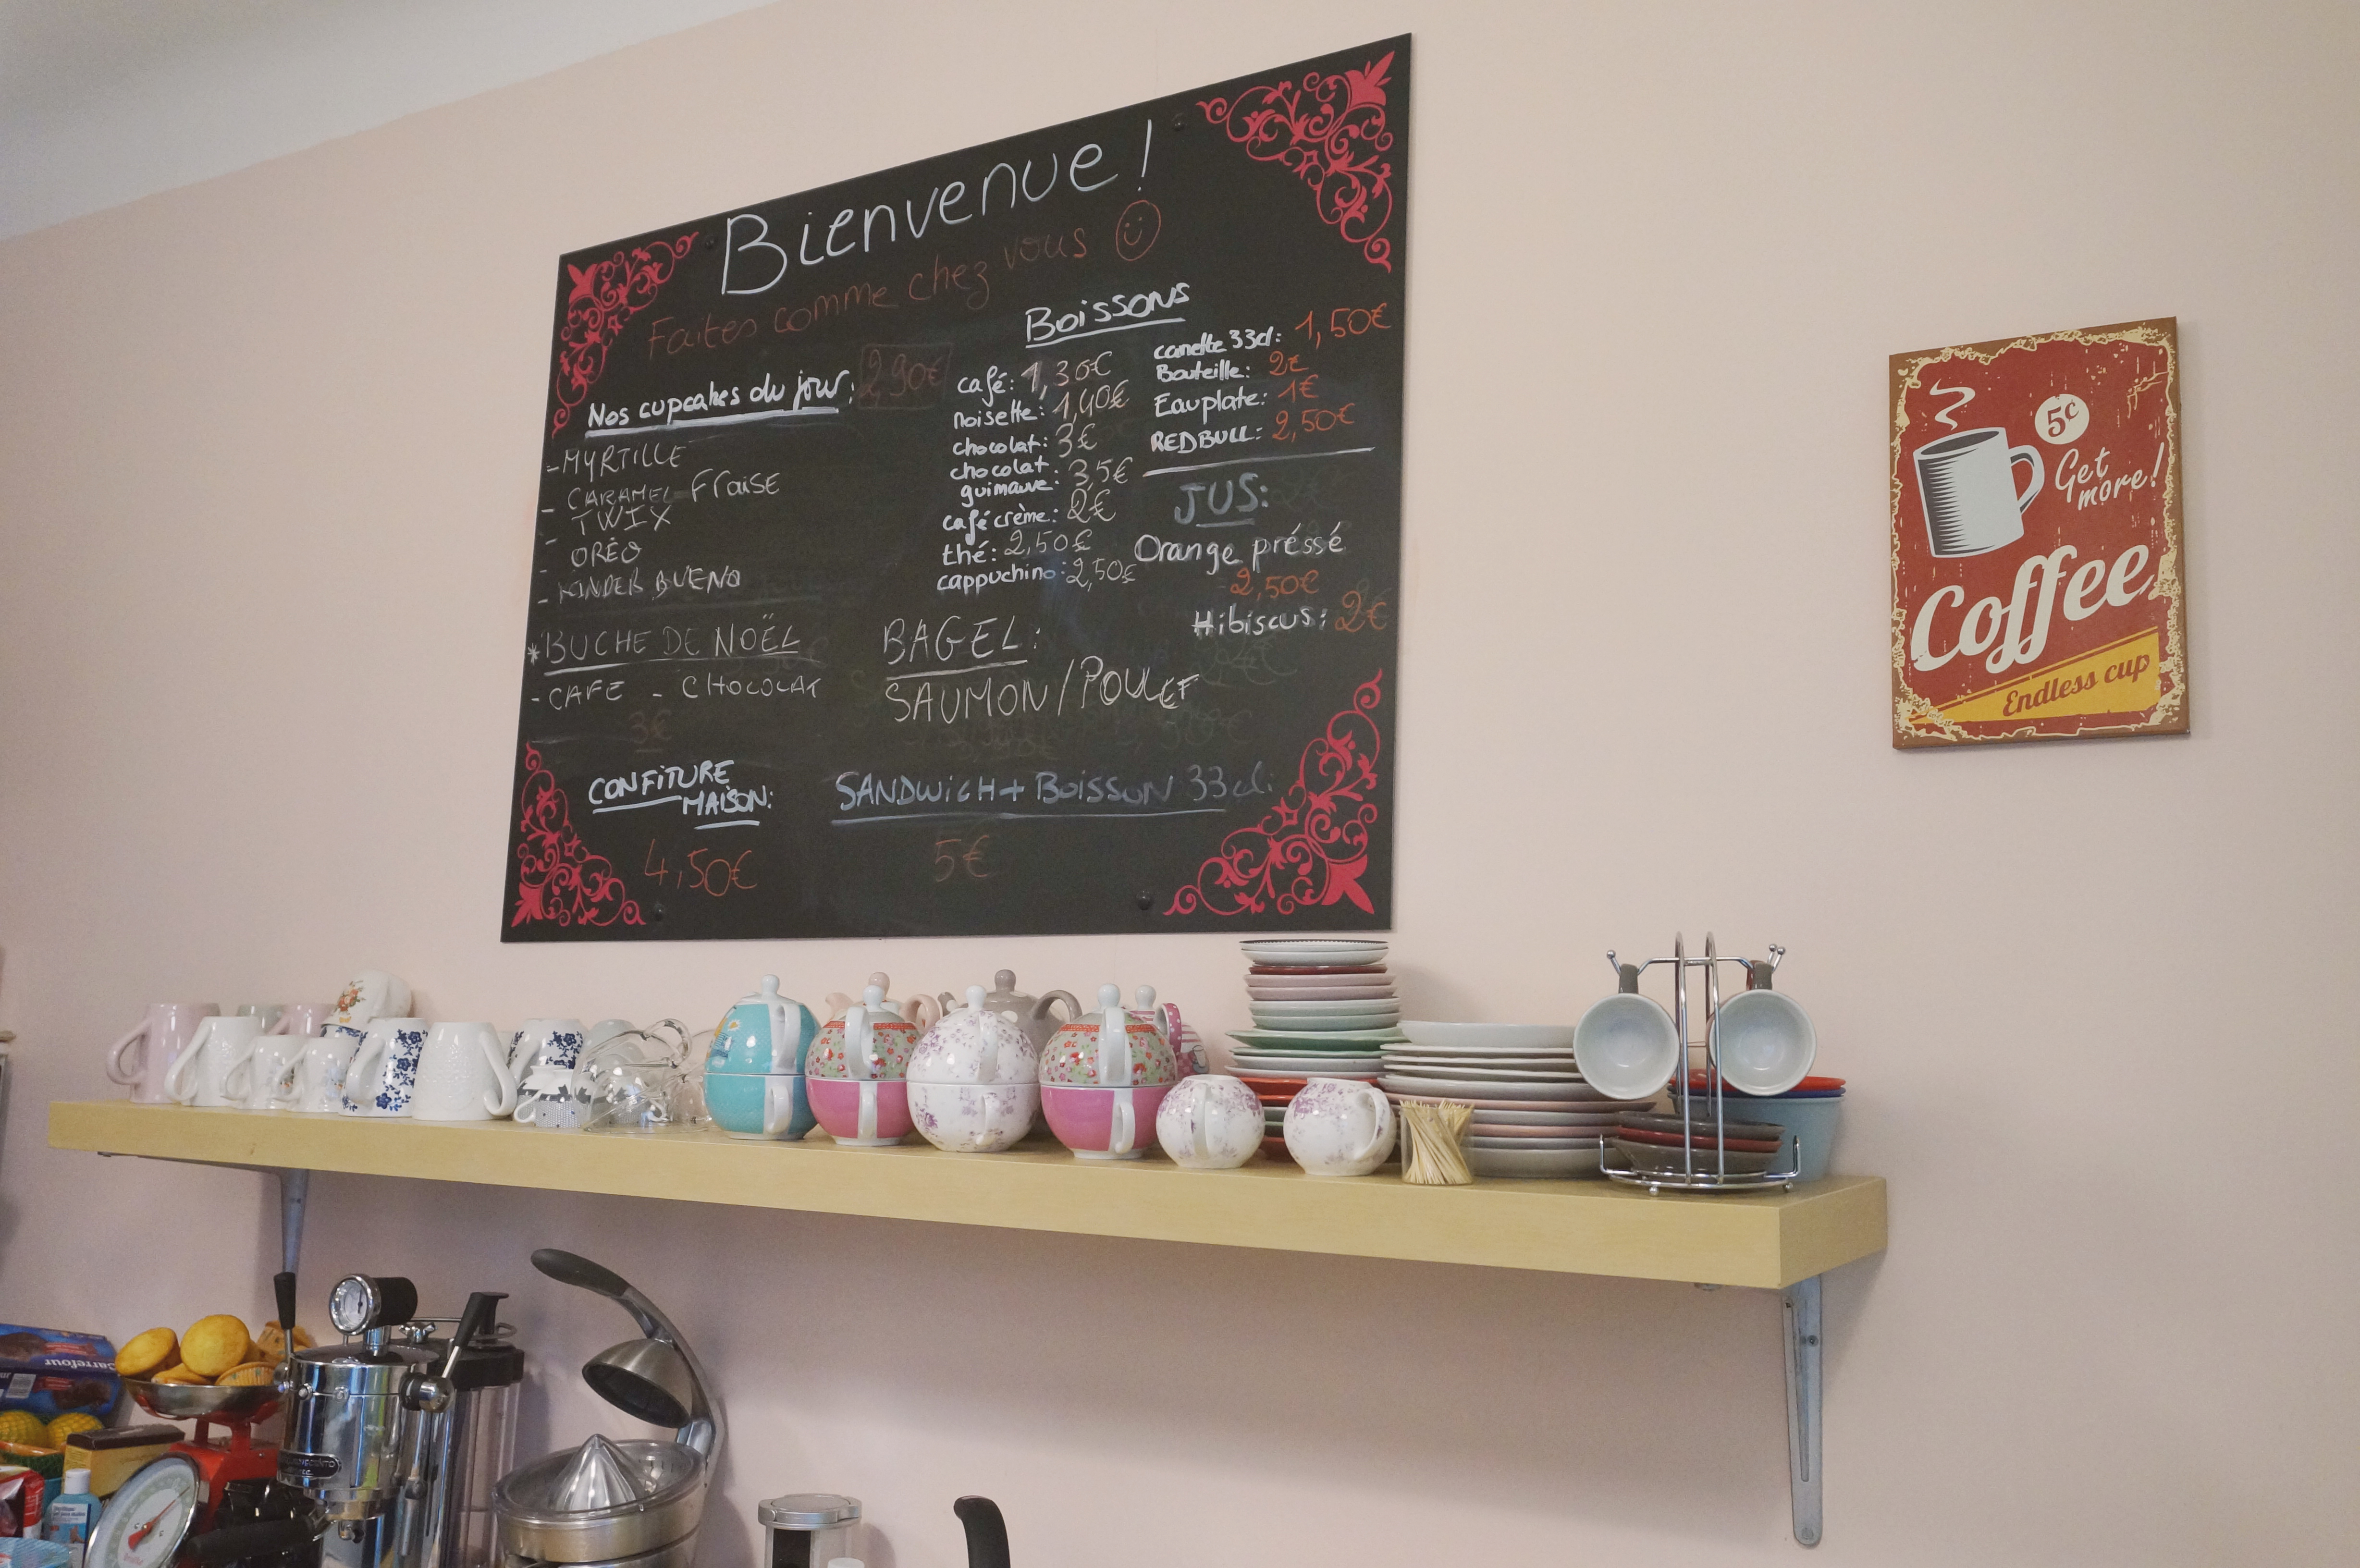 Bienvenue!
Faites comme chez vous
Nos cupcakes du jour: 2,90€
-MYRTILLE
- CARAMEL-Fraise
- TWIX
- ORÉO
- KINDER BUENO
*BUCHE DE NOËL
-CAFE - CHOCOLAT
3€
CONFITURE
MAISON:
4,50€
Boissons
café: 1,30€
noisette: 1,40€
chocolat: 3€
chocolat
guimauve: 3,5€
café crème: 2€
thé: 2,50€
cappuchino: 2,50€
canette 33cl: 1,50€
Bouteille: 2€
Eau plate: 1€
REDBULL: 2,50€
JUS:
Orange préssé
2,50€
Hibiscus: 2€
BAGEL:
SAUMON/POULET
SANDWICH+BOISSON 33cl:
5€
5¢
Get
more!
Coffee
Endless cup
Carrefour